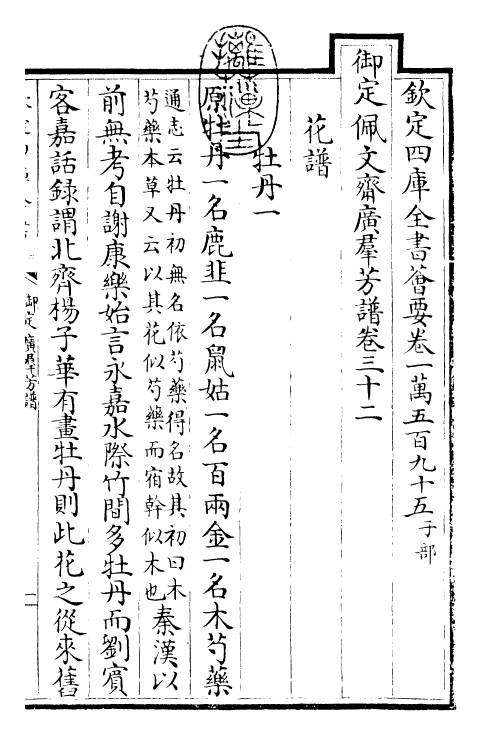 欽定四庫全書薈要卷一萬五百九十五子部
御定佩文齋廣羣芳譜卷三十二
花譜
牡丹一
原牡丹一名鹿韭一名鼠姑一名百兩金一名木芍藥
通志云牡丹初無名依芍藥得名故其初曰木
芍藥本草又云以其花似芍藥而宿幹似木也
秦漢以
前無考自謝康樂始言永嘉水際竹間多牡丹而劉賓
客嘉話録謂北齊楊子華有畫牡丹則此花之從來舊
御定廣羣芳譜
一